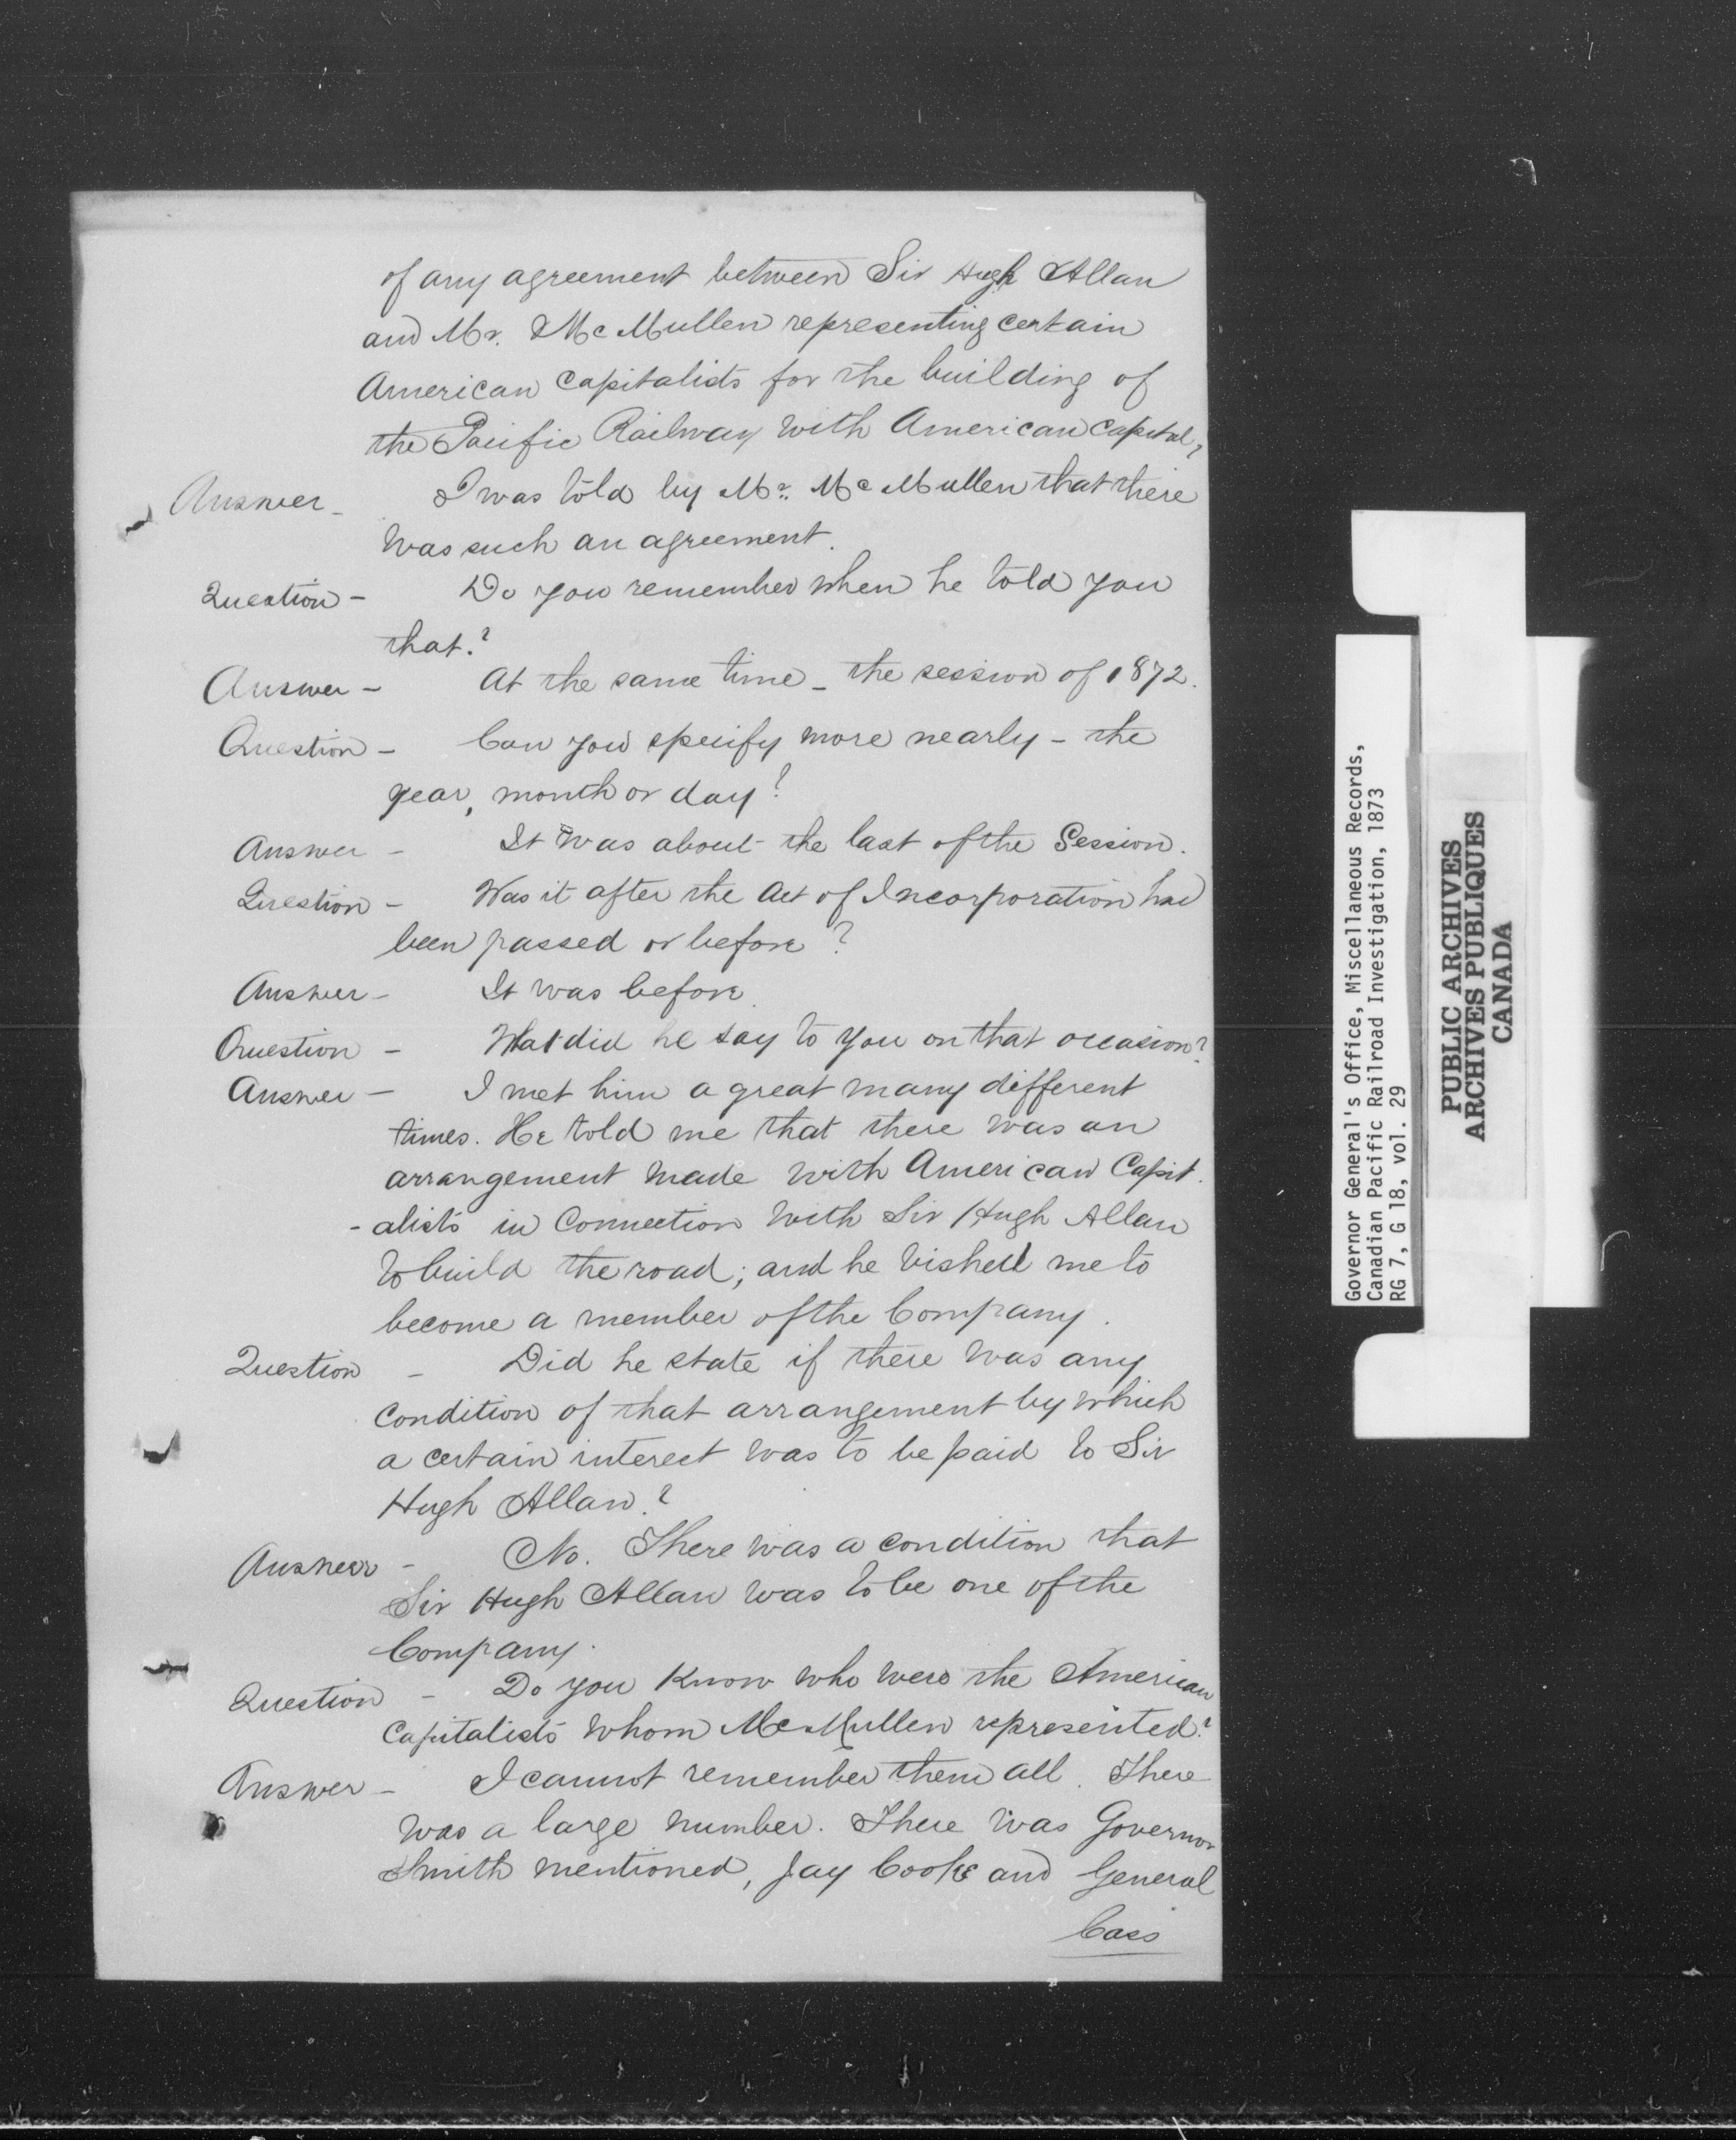 of any agreement between Sir Hugh Allan
and Mr. McMullen representing certain
American Capitalists for the building of
the Pacific Railway with American Capital?
Answer - I was told by Mr. McMullen that there
was such an agreement.
Question - Do you remember when he told you
that?
Answer - At the same time - the session of 1872.
Question - Can you specify more nearly - the
year, month or day?
Answer - It was about the last of the Session.
Question - Was it after the Act of Incorporation had
been passed or before?
Answer - It was before.
Question - What did he say to you on that occasion?
Answer - I met him a great many different
times. He told me that there was an
arrangement made with American Capit-
-alists in Connection with Sir Hugh Allan
to build the road; and he wished me to
become a member of the Company.
Question - Did he state if there was any
Condition of that arrangement by which
a certain interest was to be paid to Sir
Hugh Allan?
Answer - No. There was a condition that
Sir Hugh Allan was to be one of the
Company.
Question - Do you Know who were the American
Capitalists whom McMullen represented?
Answer - I cannot remember them all. There
was a large number. There was Governor
Smith mentioned, Jay Cooke and General
Cass
Governor General's Office, Miscellaneous Records,
Canadian Pacific Railroad Investigation, 1873
RG 7, G 18, vol. 29
PUBLIC ARCHIVES
ARCHIVES PUBLIQUES
CANADA